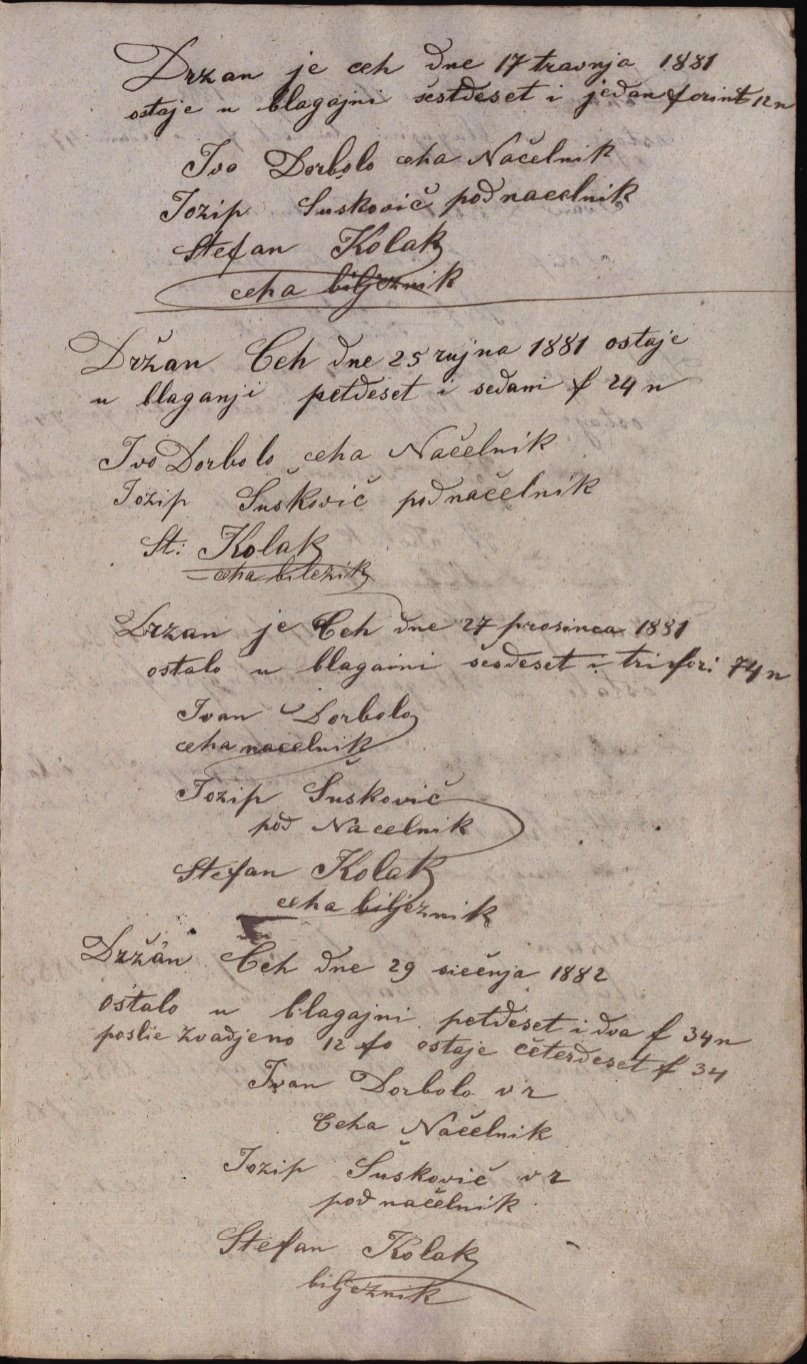 Drzan je ceh dne 17 travnja 1881
ostaje u blagajni šestdeset i jedan forint 12 n
Ivo Dorbolo ceha Načelnik
Jozip Suskovič podnacelnik
Stefan Kolak
ceha biljeznik
Držan Ceh dne 25 rujna 1881 ostaje
u blaganji petdeset i sedam f 24 n
Ivo Dorbolo ceha Načelnik
Jozip Šuskovič podnačelnik
St: Kolak
ceha bileznik
Drzan je Ceh dne 27 prosinca 1881
ostalo u blagaini šesdeset i tri fori 74 n
Ivan Dorbolo
ceha nacelnik
Jozip Šuskovič
pod Nacelnik
Stefan Kolak
ceha biljeznik
Držan Ceh dne 29 siečnja 1882
ostalo u blagajni petdeset i dva f 34 n
poslie zvadjeno 12 fo ostaje četerdeset f 34
Ivan Dorbolo v r
Ceha Načelnik
Jozip Šuskovič v r
podnačelnik
Stefan Kolak
biljeznik